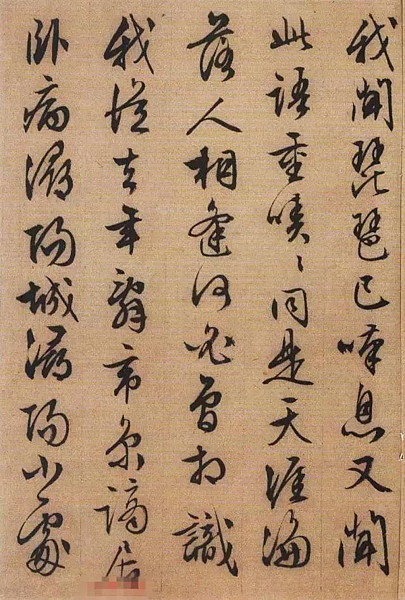 我聞琵琶已嘆息又聞
此語重唧々同是天涯淪
落人相逢何必曾相識
我從去年辭帝京謫居
卧病潯陽城潯陽小處